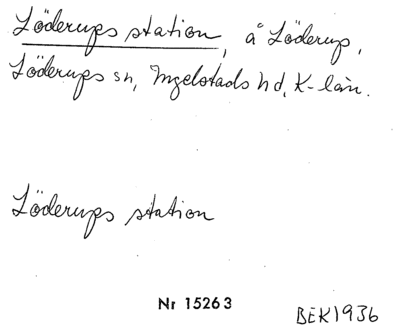 Löderups station, å Löderup,
Löderups sn, Ingelstads hd, K-län.
Löderups station
Nr 15263
BEK1936